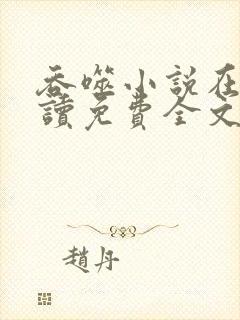 吞噬小說在
讀免費全文
趙丹